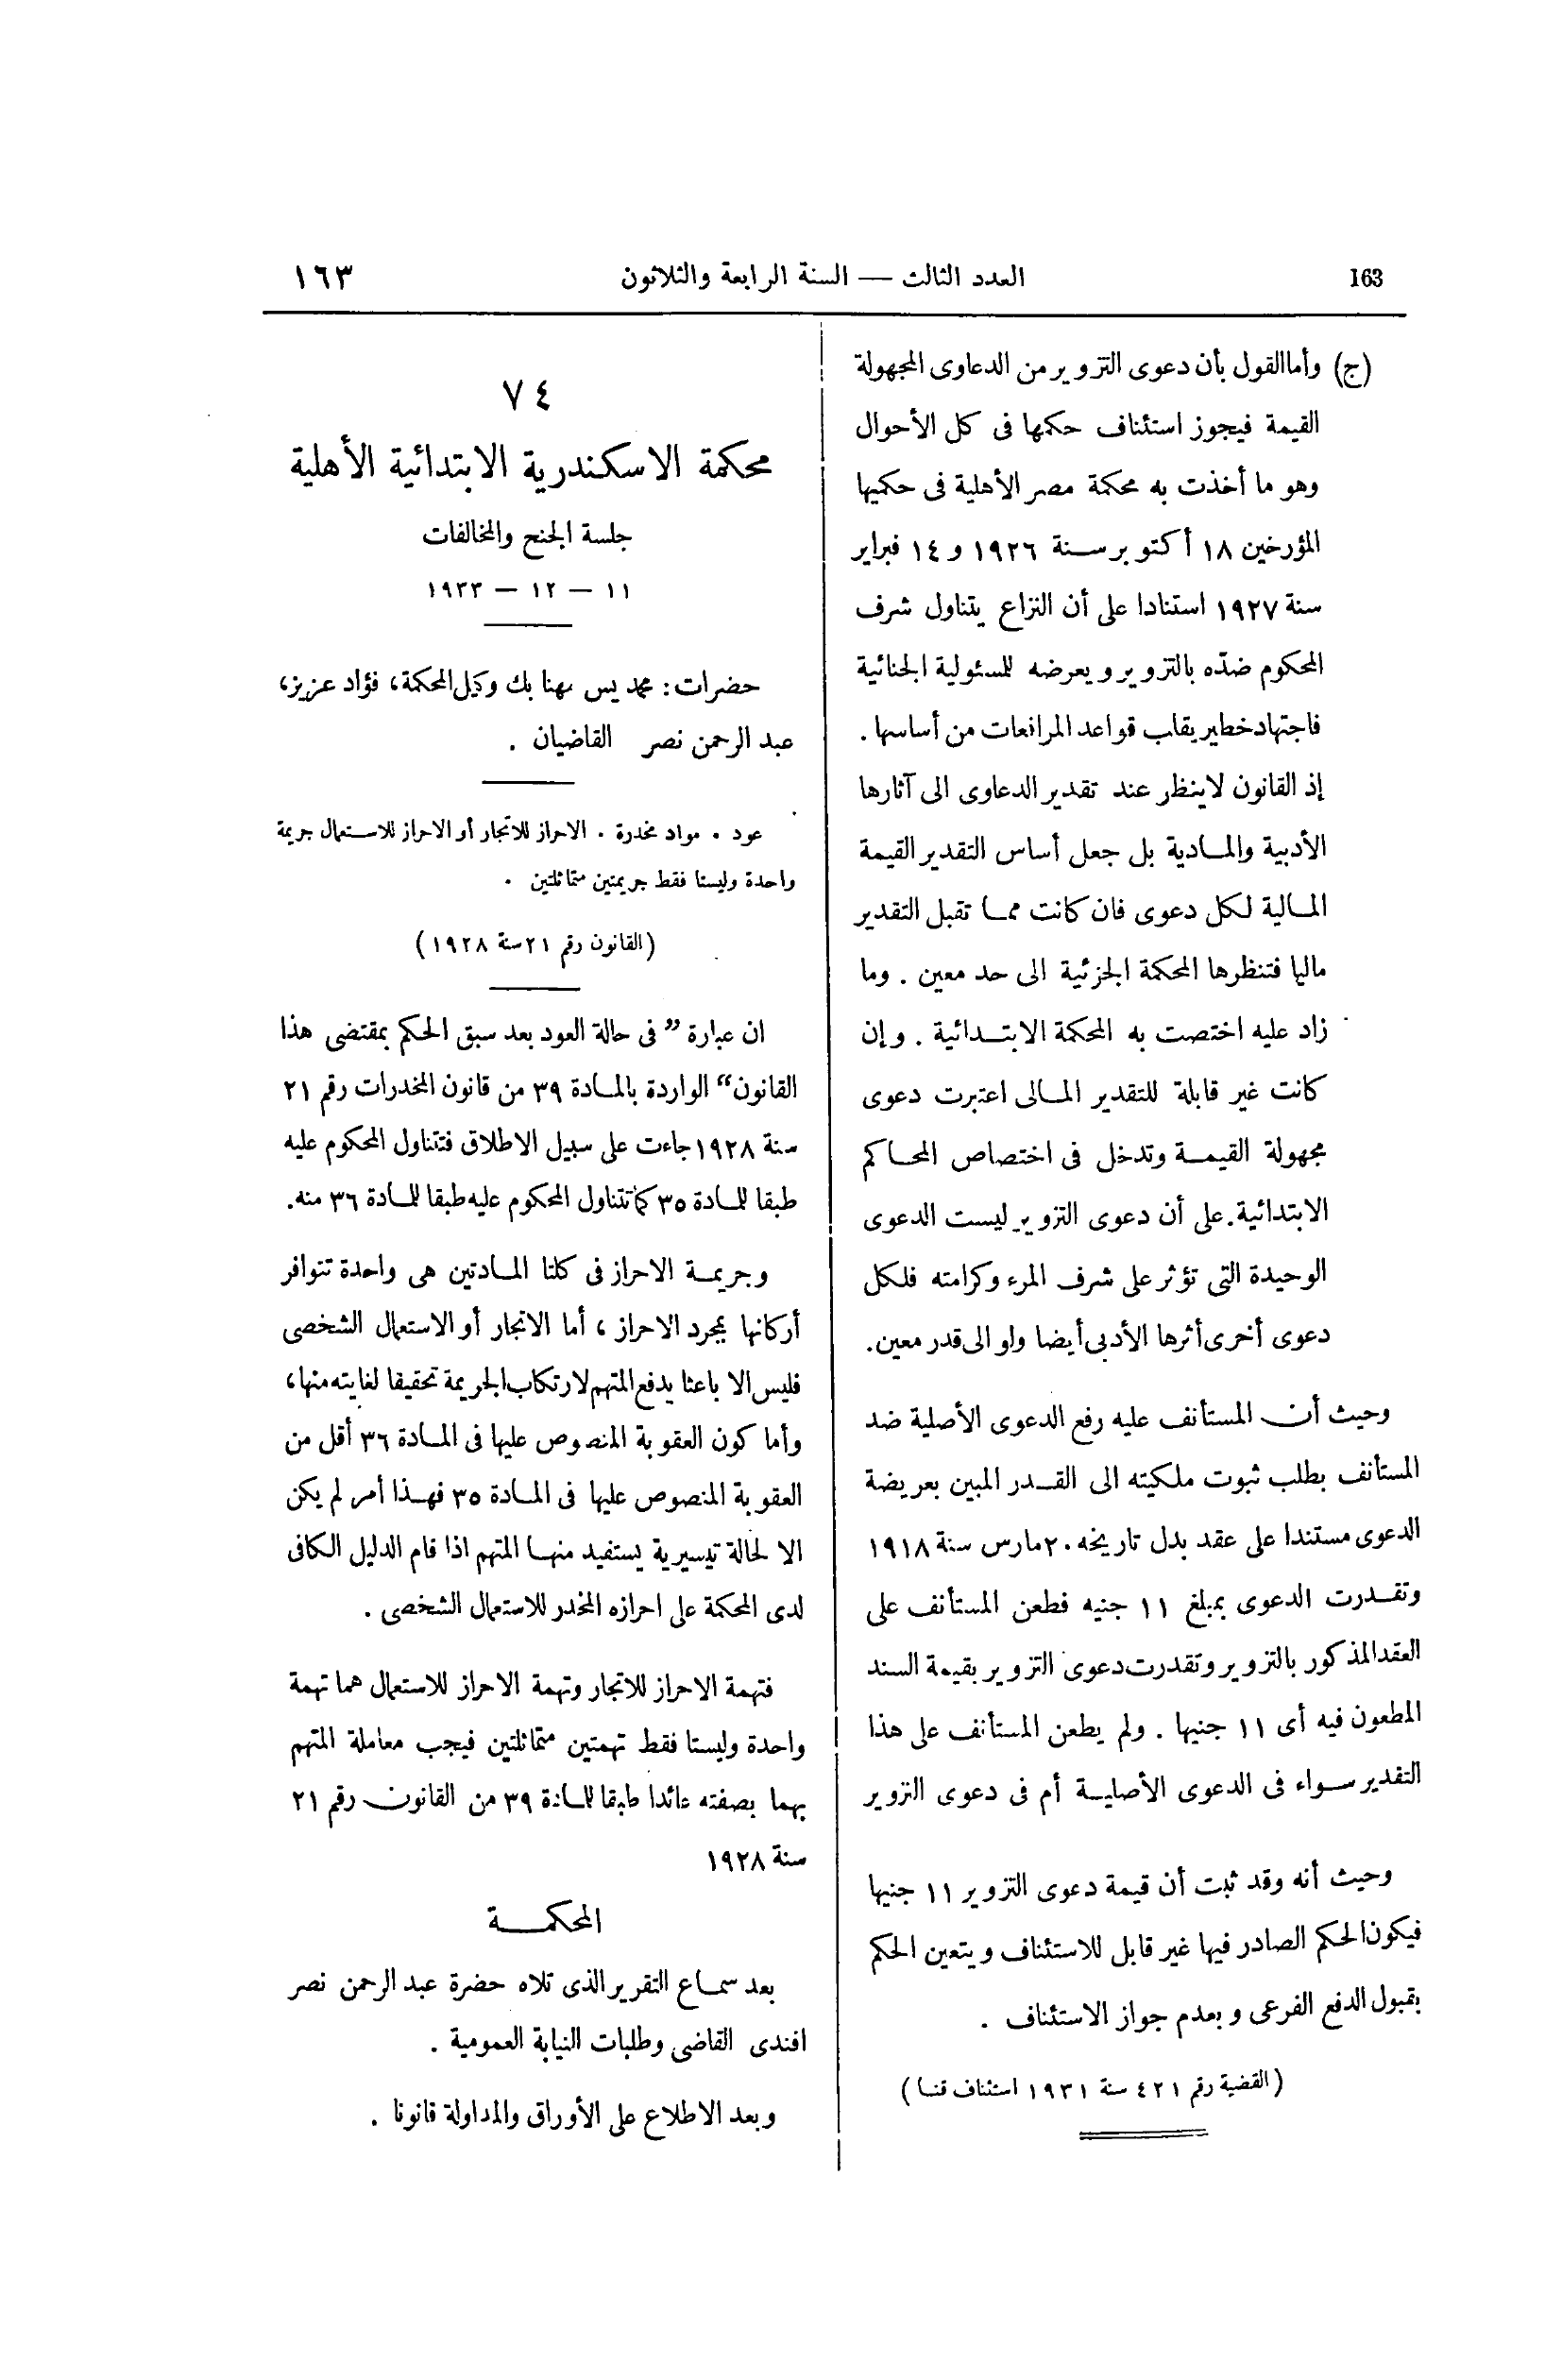 163
العدد الثالث — السنة الرابعة والثلاثون
١٦٣
(ج) وأما القول بأن دعوى التزوير من الدعاوى المجهولة
القيمة فيجوز استئناف حكمها فى كل الأحوال
وهو ما أخذت به محكمة مصر الأهلية فى حكميها
المؤرخين ١٨ أكتوبر سنة ١٩٢٦ و ١٤ فبراير
سنة ١٩٢٧ استنادا على أن النزاع يتناول شرف
المحكوم ضدّه بالتزوير ويعرضه للمسئولية الجنائية
فاجتهاد خطير يقلب قواعد المرافعات من أساسها .
إذ القانون لا ينظر عند تقدير الدعاوى الى آثارها
الأدبية والمادية بل جعل أساس التقدير القيمة
المالية لكل دعوى فان كانت مما تقبل التقدير
ماليا فتنظرها المحكمة الجزئية الى حد معين . وما
زاد عليه اختصت به المحكمة الابتدائية . وإن
كانت غير قابلة للتقدير المالى اعتبرت دعوى
مجهولة القيمة وتدخل فى اختصاص المحاكم
الابتدائية . على أن دعوى التزوير ليست الدعوى
الوحيدة التى تؤثر على شرف المرء وكرامته فلكل
دعوى أخرى أثرها الأدبى أيضا ولو الى قدر معين .
وحيث أن المستأنف عليه رفع الدعوى الأصلية ضد
المستأنف بطلب ثبوت ملكيته الى القدر المبين بعريضة
الدعوى مستندا على عقد بدل تاريخه ٢٠ مارس سنة ١٩١٨
وتقدرت الدعوى بمبلغ ١١ جنيه فطعن المستأنف على
العقد المذكور بالتزوير وتقدرت دعوى التزوير بقيمة السند
المطعون فيه أى ١١ جنيها . ولم يطعن المستأنف على هذا
التقدير سواء فى الدعوى الأصلية أم فى دعوى التزوير
وحيث أنه وقد ثبت أن قيمة دعوى التزوير ١١ جنيها
فيكون الحكم الصادر فيها غير قابل للاستئناف ويتعين الحكم
بقبول الدفع الفرعى وبعدم جواز الاستئناف .
(القضية رقم ٤٢١ سنة ١٩٣١ استئناف قنا)
٧٤
محكمة الاسكندرية الابتدائية الأهلية
جلسة الجنح والمخالفات
١١ — ١٢ — ١٩٣٣
حضرات : محمد يس مهنا بك وكيل المحكمة ، فؤاد عزيز ،
عبد الرحمن نصر القاضيان .
عود . مواد مخدرة . الاحراز للاتجار أو الاحراز للاستعمال جريمة
واحدة وليستا فقط جريمتين متماثلتين .
(القانون رقم ٢١ سنة ١٩٢٨)
ان عبارة ” فى حالة العود بعد سبق الحكم بمقتضى هذا
القانون “ الواردة بالمادة ٣٩ من قانون المخدرات رقم ٢١
سنة ١٩٢٨ جاءت على سبيل الاطلاق فتتناول المحكوم عليه
طبقا للمادة ٣٥ كما تتناول المحكوم عليه طبقا للمادة ٣٦ منه .
وجريمة الاحراز فى كلتا المادتين هى واحدة تتوافر
أركانها بمجرد الاحراز ، أما الاتجار أو الاستعمال الشخصى
فليس الا باعثا يدفع المتهم لارتكاب الجريمة تحقيقا لغايته منها ،
وأما كون العقوبة المنصوص عليها فى المادة ٣٦ أقل من
العقوبة المنصوص عليها فى المادة ٣٥ فهذا أمر لم يكن
الا لحالة تيسيرية يستفيد منها المتهم اذا قام الدليل الكافى
لدى المحكمة على احرازه المخدر للاستعمال الشخصى .
فتهمة الاحراز للاتجار وتهمة الاحراز للاستعمال هما تهمة
واحدة وليستا فقط تهمتين متماثلتين فيجب معاملة المتهم
بهما بصفته عائدا طبقا للمادة ٣٩ من القانون رقم ٢١
سنة ١٩٢٨
المحكمة
بعد سماع التقرير الذى تلاه حضرة عبد الرحمن نصر
افندى القاضى وطلبات النيابة العمومية .
وبعد الاطلاع على الأوراق والمداولة قانونا .